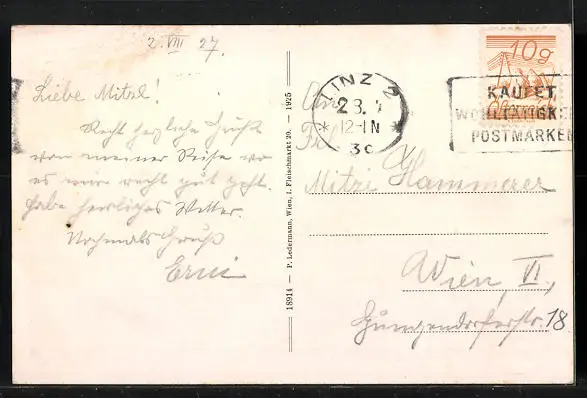 2. VIII 27.
Liebe Mitzl!
Recht herzliche Grüße
von meiner Reise wo
es mir recht gut geht.
Habe herrliches Wetter.
Nochmals Gruß
Erni
18914 — P. Ledermann, Wien, I. Fleischmarkt 20. — 1925
LINZ 2
* 12-IN *
10g
KAUFET
WOHLTÄTIGKEI
POSTMARKEN
An
Frl.
Mitzi Hammerer
Wien, VI.,
Gumpendorferstr. 18